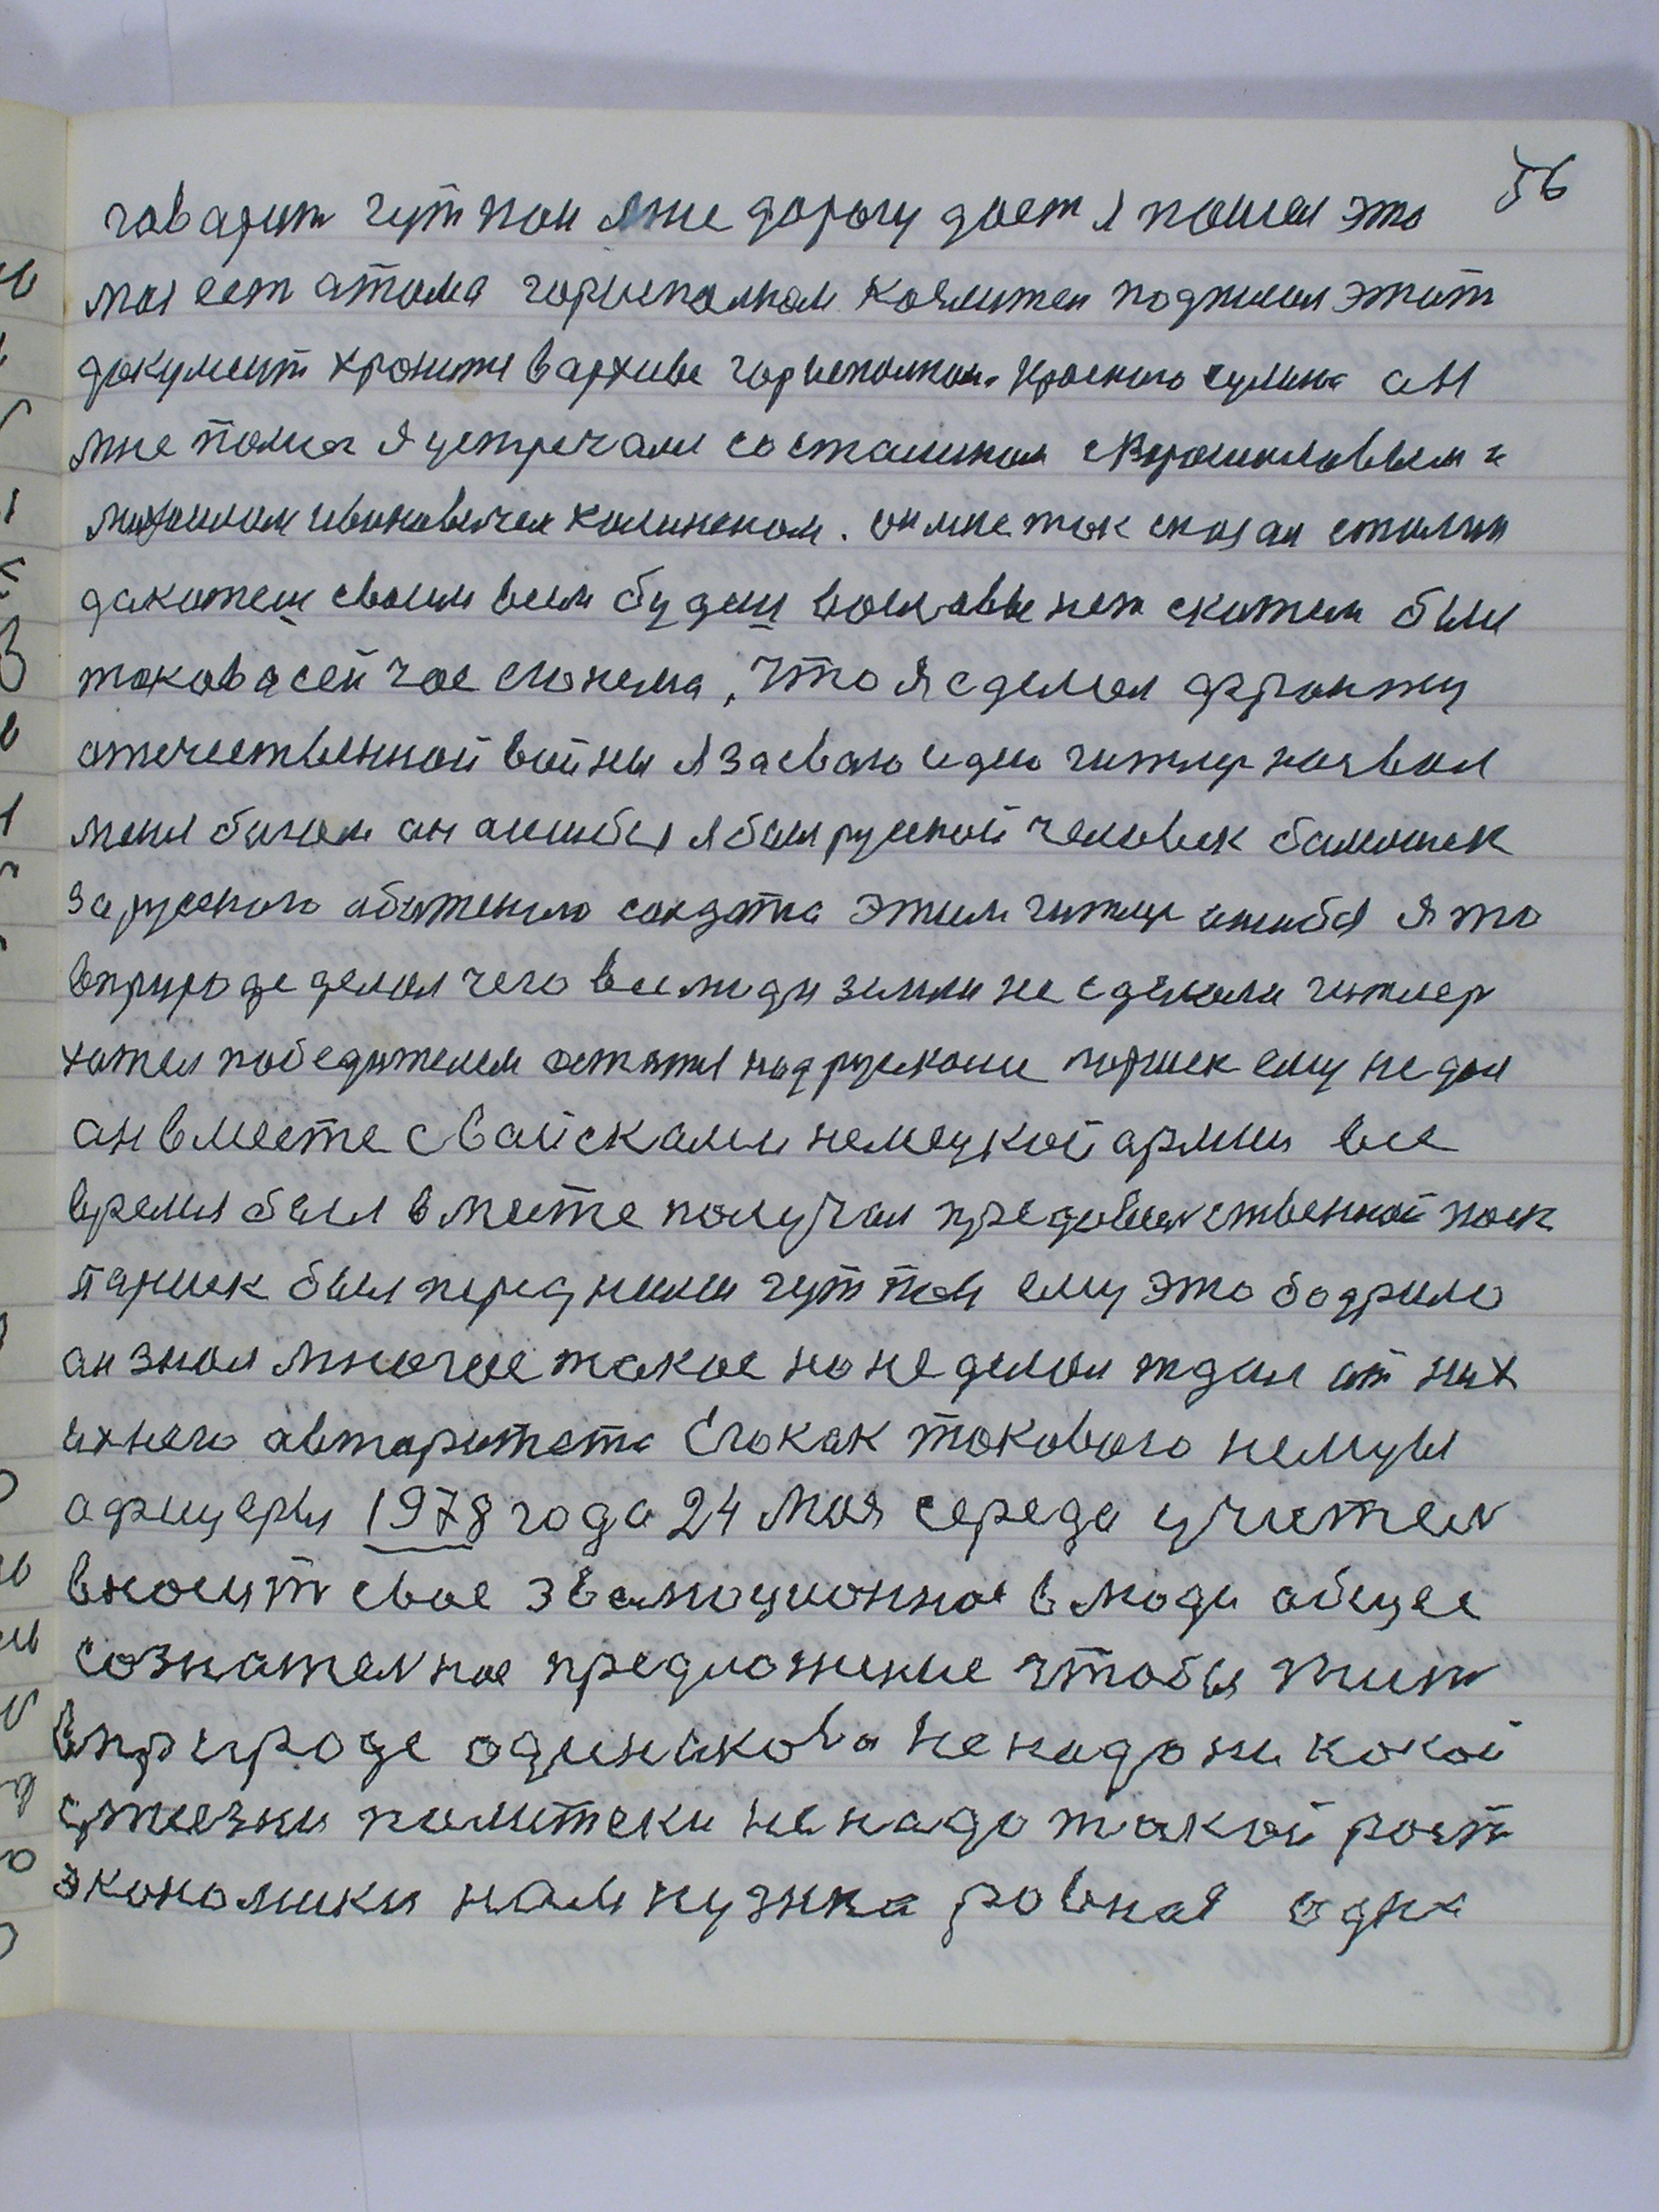 56
говарит гут пон мне дорогу дает я пошел это
моя ест атома горисполком подписал этит
документ хронитя в архиве горисполкома Красного сулина ан
мне помог я устречали со сталиным с Ворошиловым и
михоилом ивоновичем колиненом. он мне ток сказал сталин
докотем своим всем будеш нет скотем были
токова сейчас его нема, что я сделал фронту
отечественной войны я за свою идею гитлер назвал
меня богом ан ашибся я был русской человек балошек
за русского обиженого солдота этим гитлер ашибся я то
в природе делал чего все люди земли не сделали гитлер
хотел победителем остатя над русками поршек ему не дал
ан вместе с вайсками немецкой армии все
время был в месте получал
паршек был перед ними гут пон ему это бодрило
ан знал многое такое но не делал ждал от них
ихнего автаритета Его как токового немцы
афицеры 1978 года 24 Моя середа учител
вносит свое эвалюционное в люди общее
сознателное предложение чтобы жит
в природе одинакова не надо ни какой
политеки не надо такой рост
экономики нам нужна ровная одна